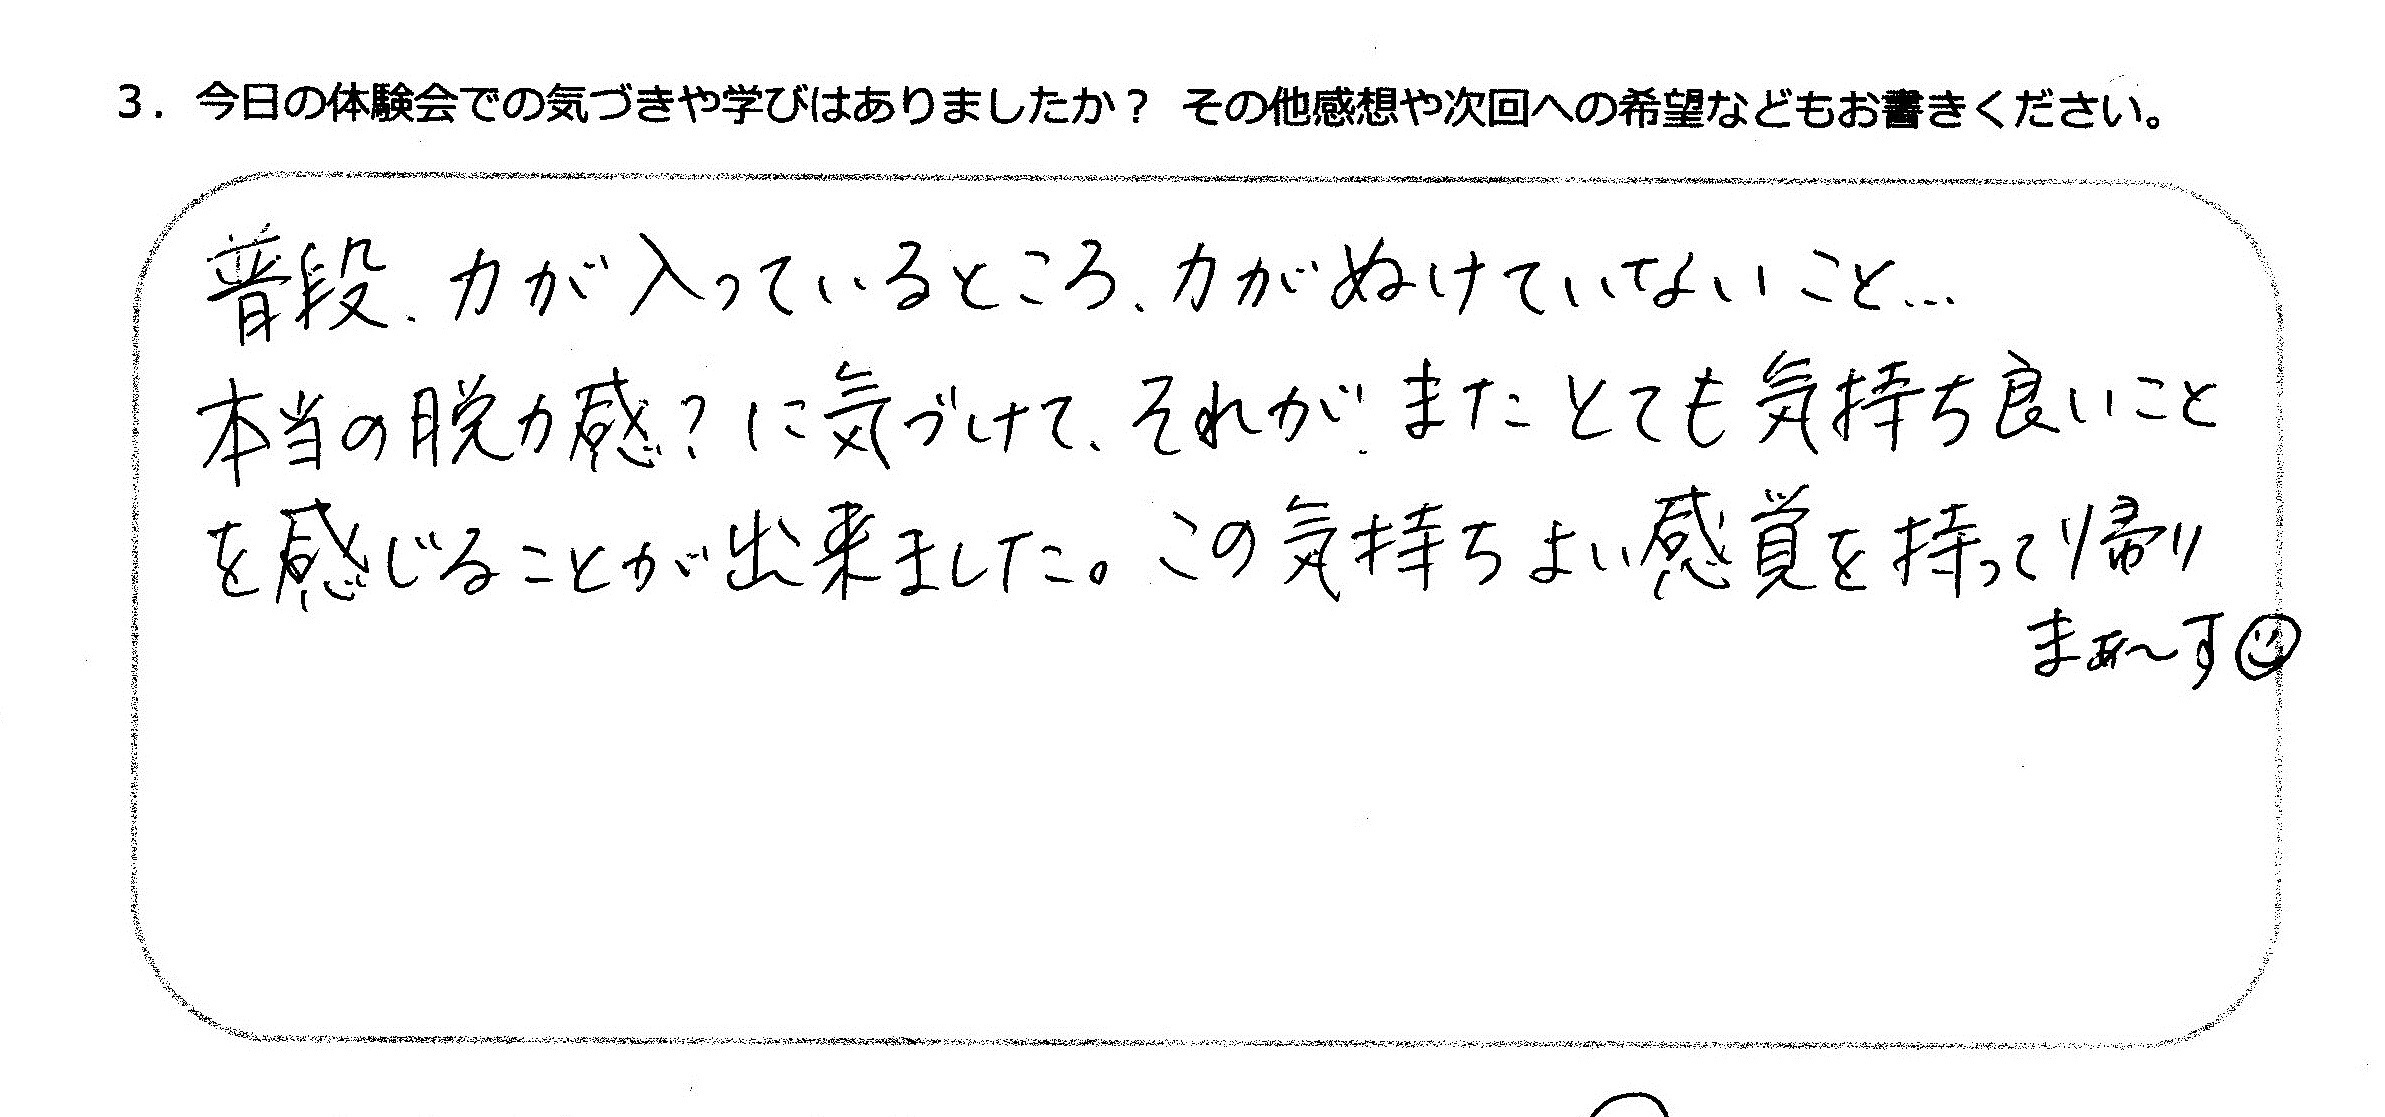 3. 今日の体験会での気づきや学びはありましたか？ その他感想や次回への希望などもお書きください。
普段、力が入っているところ、力がぬけていないこと…
本当の脱力感？に気づけて、それが、またとても気持ち良いこと
を感じることが出来ました。この気持ちよい感覚を持って帰り
まぁ〜す☺